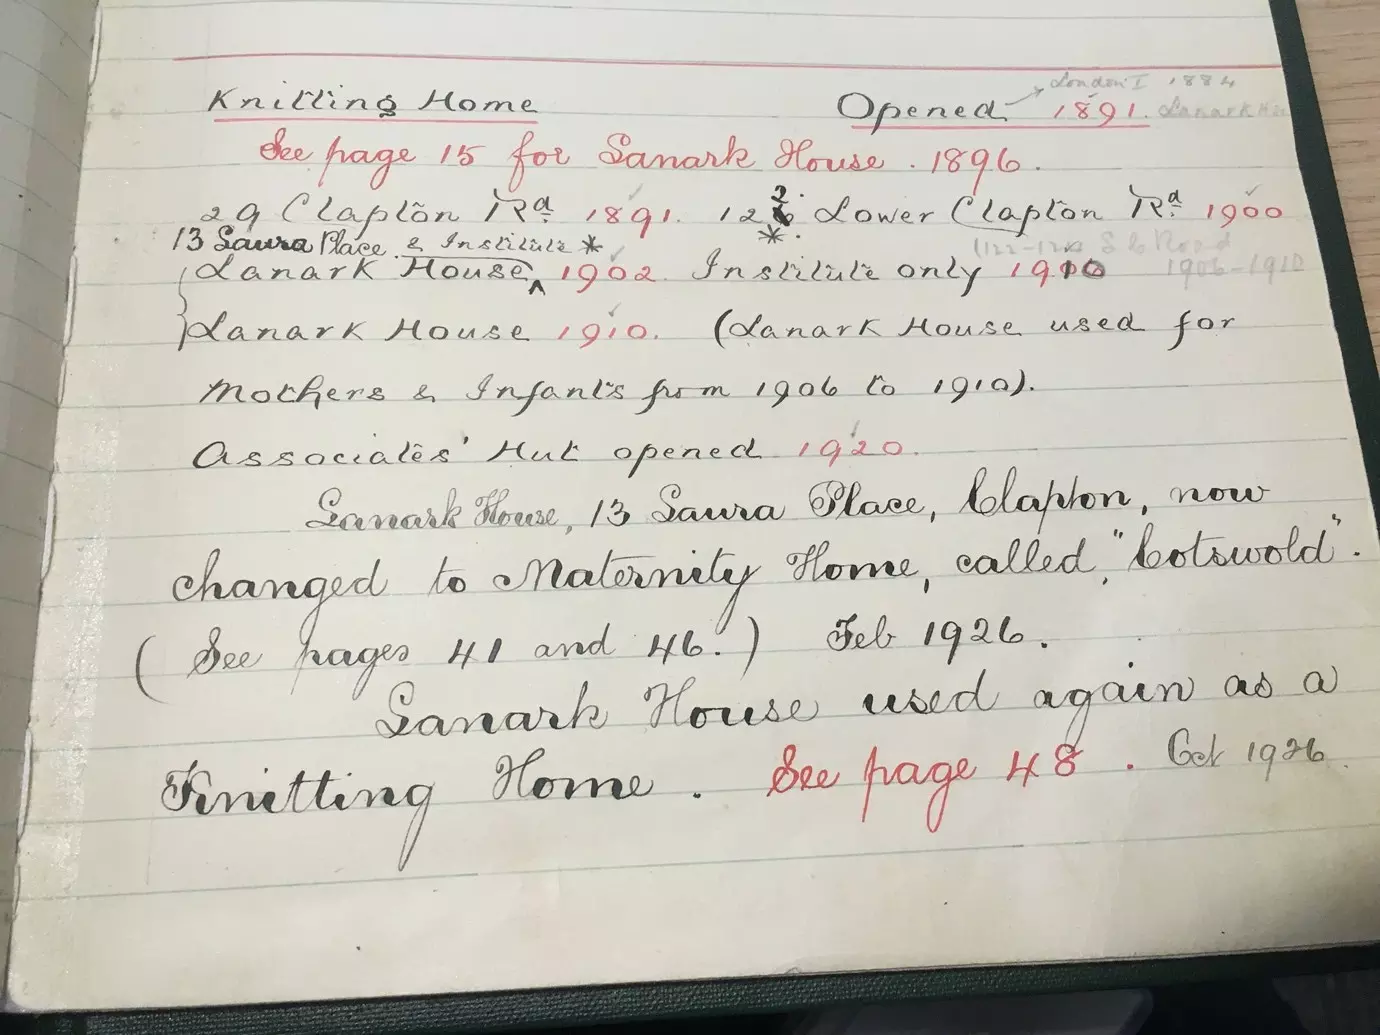 London I 1884
Knitting Home Opened 1891. Lanark Hse
See page 15 for Lanark House. 1896.
29 Clapton Rd. 1891. 122. Lower Clapton Rd. 1900
13 Laura Place. & Institute * *. (122-124 L C Road
Lanark House, ^ 1902. Institute only 1910 1906-1910
Lanark House 1910. (Lanark House used for
Mothers & Infants from 1906 to 1910).
Associates' Hut opened 1920.
Lanark House, 13 Laura Place, Clapton, now
changed to Maternity Home, called, "Cotswold".
(See pages 41 and 46.) Feb 1926.
Lanark House used again as a
Knitting Home. See page 48. Oct 1926.